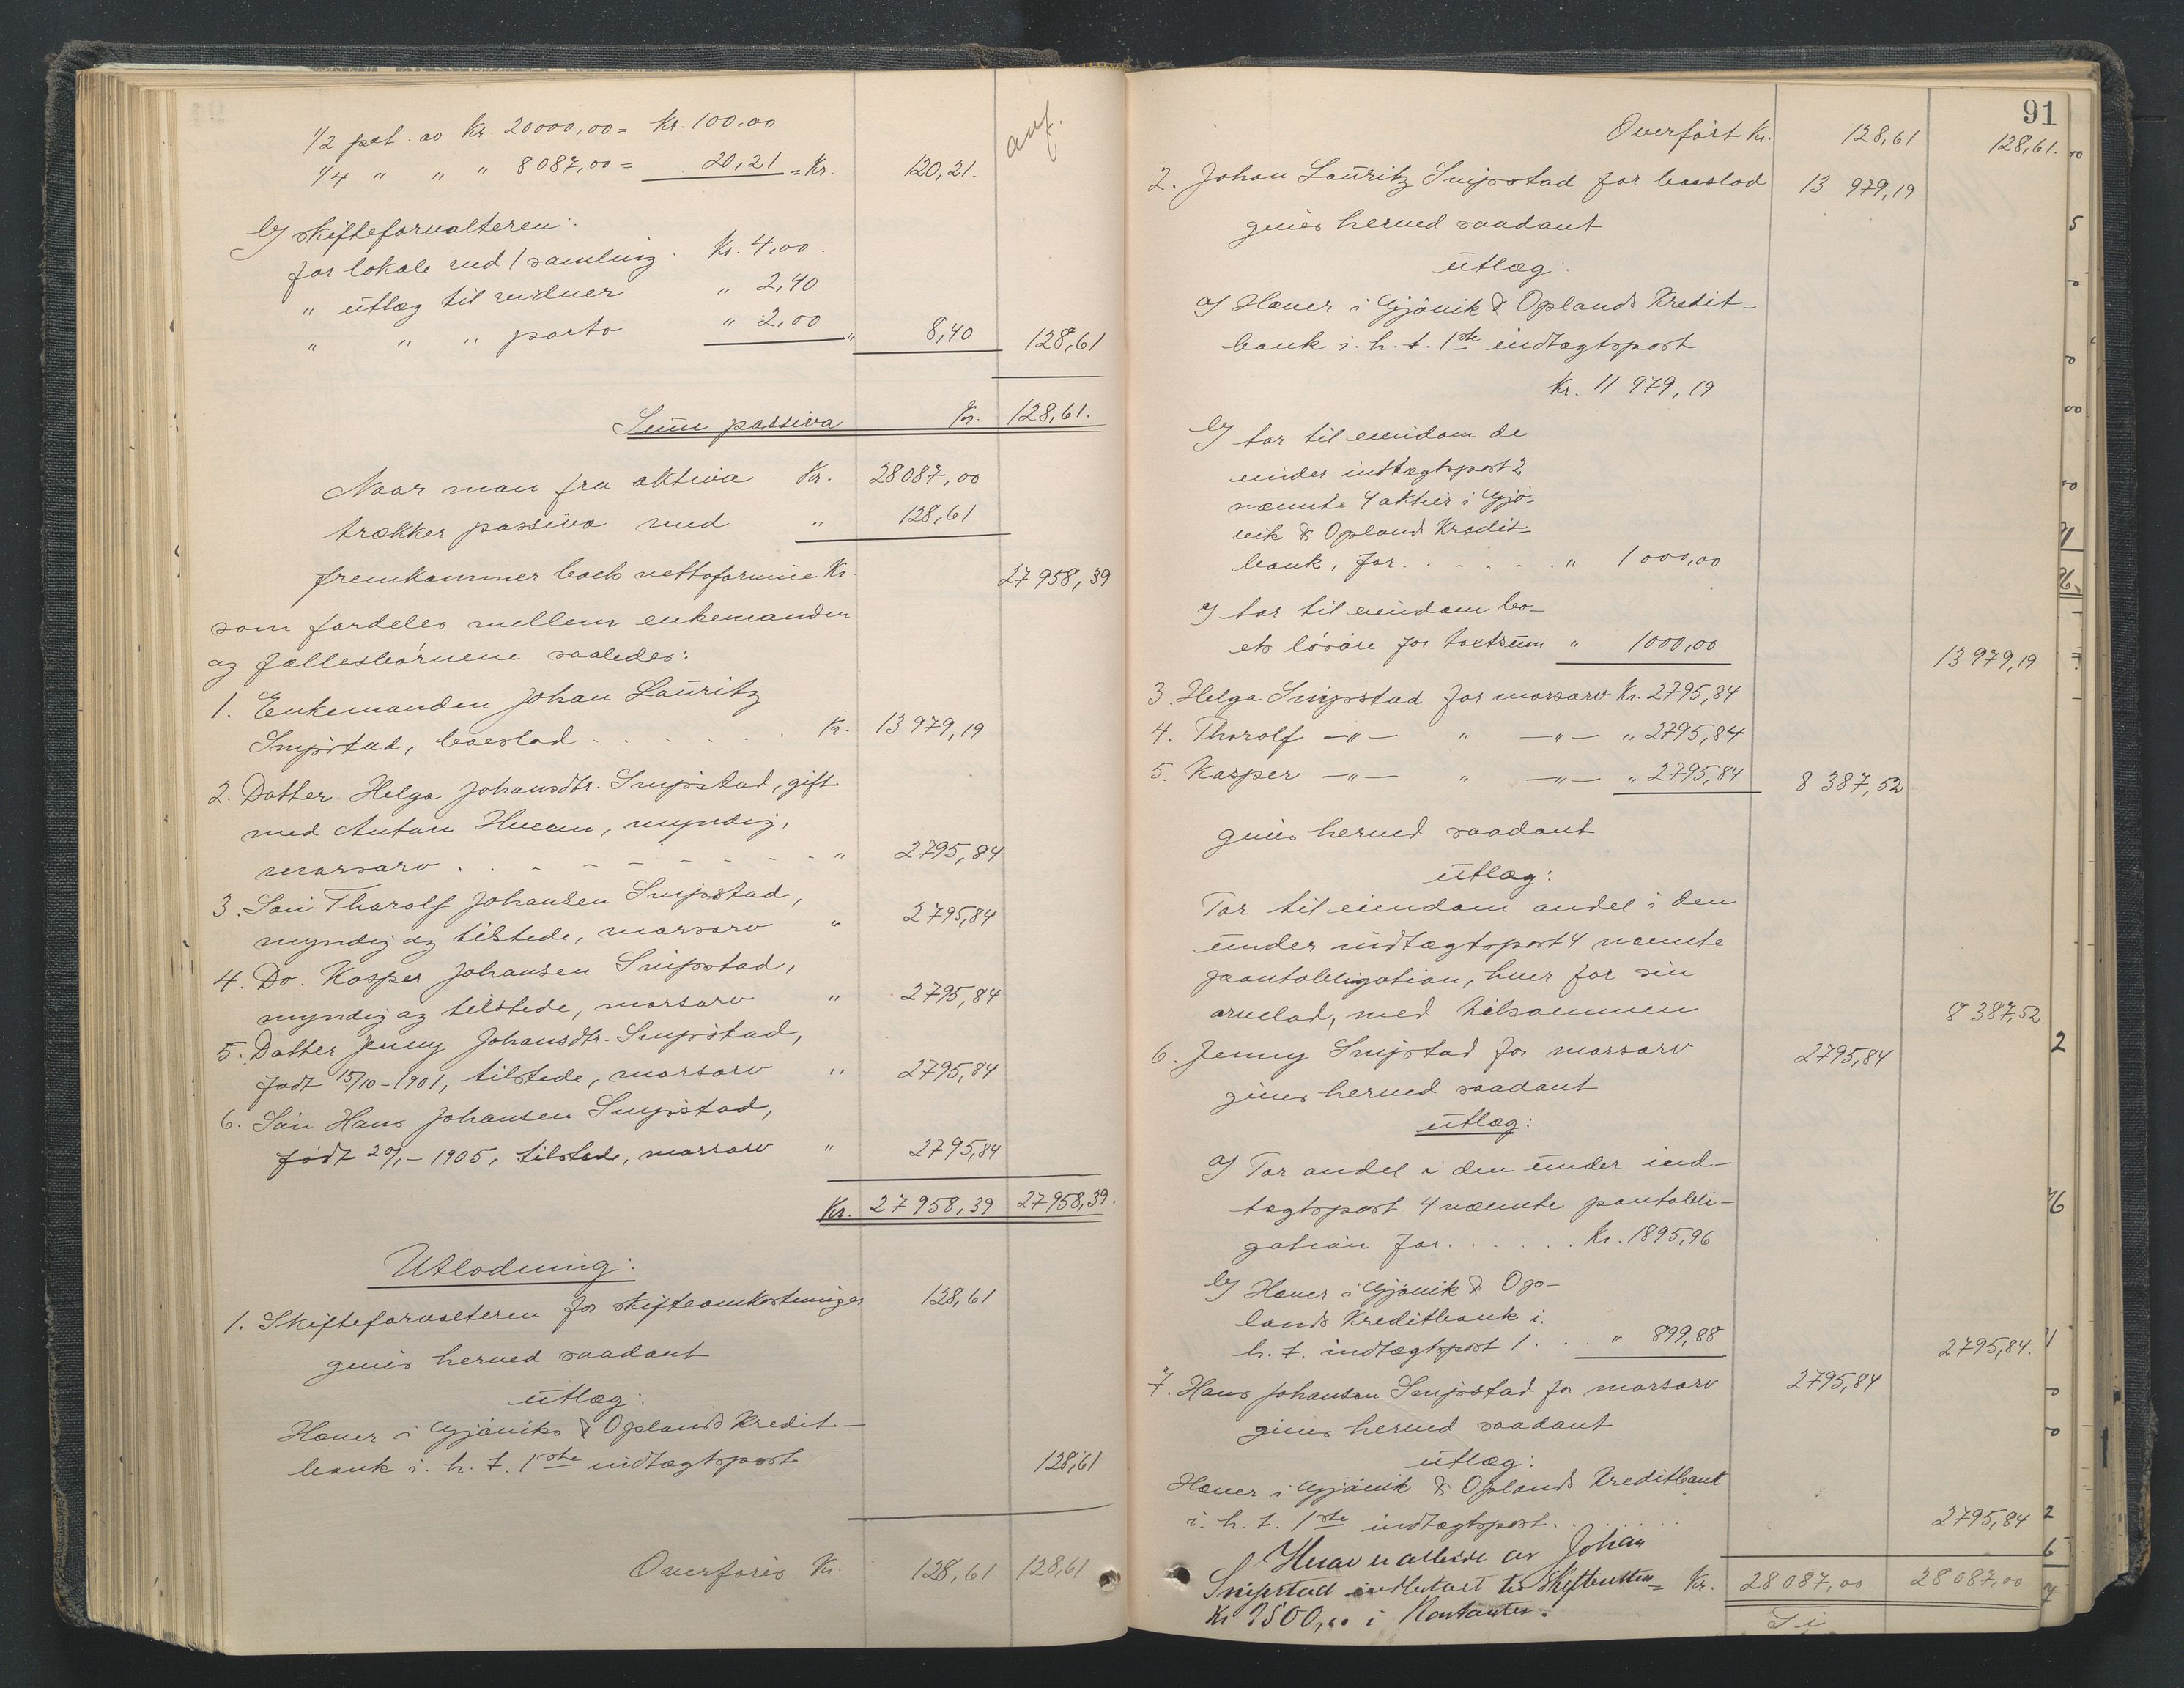 1/2 pct. av Kr. 20000,00 = Kr. 100.00
1/4 " " " 8087,00 = 20,21 = Kr. 120,21.
b) skifteforvalteren:
for lokale ved 1 samling. Kr. 4,00.
" utlæg til vidner " 2,40
" " " porto " 2,00 " 8,40 128,61
Sum passiva Kr. 128,61.
Naar man fra aktiva Kr. 28087,00
trækker passiva med " 128,61
fremkommer boets nettoformue Kr. 27958,39
som fordeles mellem enkemanden
og fællesbørnene saaledes:
1. Enkemanden Johan Lauritz
Snipstad, boeslod . . . . . Kr. 13979,19
2. Datter Helga Johansdtr. Snipstad, gift
med Anton , myndig,
morsarv . . - - - - - - - " 2795,84
3. Søn Thorolf Johansen Snipstad,
myndig og tilstede, morsarv " 2795,84
4. Do. Kasper Johansen Snipstad,
myndig og tilstede, morsarv " 2795,84
5. Datter Jenny Johansdtr. Snipstad,
født 15/10-1901, tilstede, morsarv " 2795,84
6. Søn Hans Johansen Snipstad,
født 20/1-1905, tilstede, morsarv " 2795,84
Kr. 27958,39 27958,39.
Utlodning:
1. Skifteforvalteren for skifteomkostninger 128,61
gives herved saadant
utlæg:
Haver i Gjøviks & Oplands Kredit-
bank i. h. t. 1ste indtægtspost 128,61
Overføres Kr. 128,61 128,61
91
Overført Kr. 128,61 128,61.
2. Johan Lauritz Snipstad for boeslod 13 979,19
gives herved saadant
utlæg:
a) Haver i Gjøvik & Oplands Kredit-
bank i. h. t. 1ste indtægtspost
Kr. 11 979,19
b) tar til eiendom de
under indtægtspost 2
nævnte 4 aktier i Gjø-
vik & Oplands Kredit-
bank, for. . . . . . " 1000,00
c) tar til eiendom bo-
ets løsøre for takstsum " 1000,00 13979,19
3. Helga Snipstad for morsarv Kr. 2795,84
4. Thorolf -"- " -"- " 2795,84
5. Kasper -"- " -"- " 2795,84 8 387,52
gives herved saadant
utlæg:
Tar til eiendom andel i den
under indtægtspost 4 nævnte
pantobligation, hver for sin
arvelod, med tilsammen 8 387,52
6. Jenny Snipstad for morsarv 2795,84
gives herved saadant
utlæg:
a) Tar andel i den under ind-
tægtspost 4 nævnte pantobli-
gation for. . . . . . Kr. 1895,96
b) Haver i Gjøvik & Op-
lands Kreditbank i.
h. t. indtægtspost 1 . . . " 899,88 2795,84.
7. Hans Johansen Snipstad for morsarv 2795,84
gives herved saadant
utlæg:
Haver i Gjøvik & Oplands Kreditbank
i. h. t. 1ste indtægtspost. . . . . 2795,84
Herav er allerede av Johan
Snipstad indbetalt til Skifteretten Kr. 28087,00 28087,00
Kr 2500,00 i Kontanter.
Ti